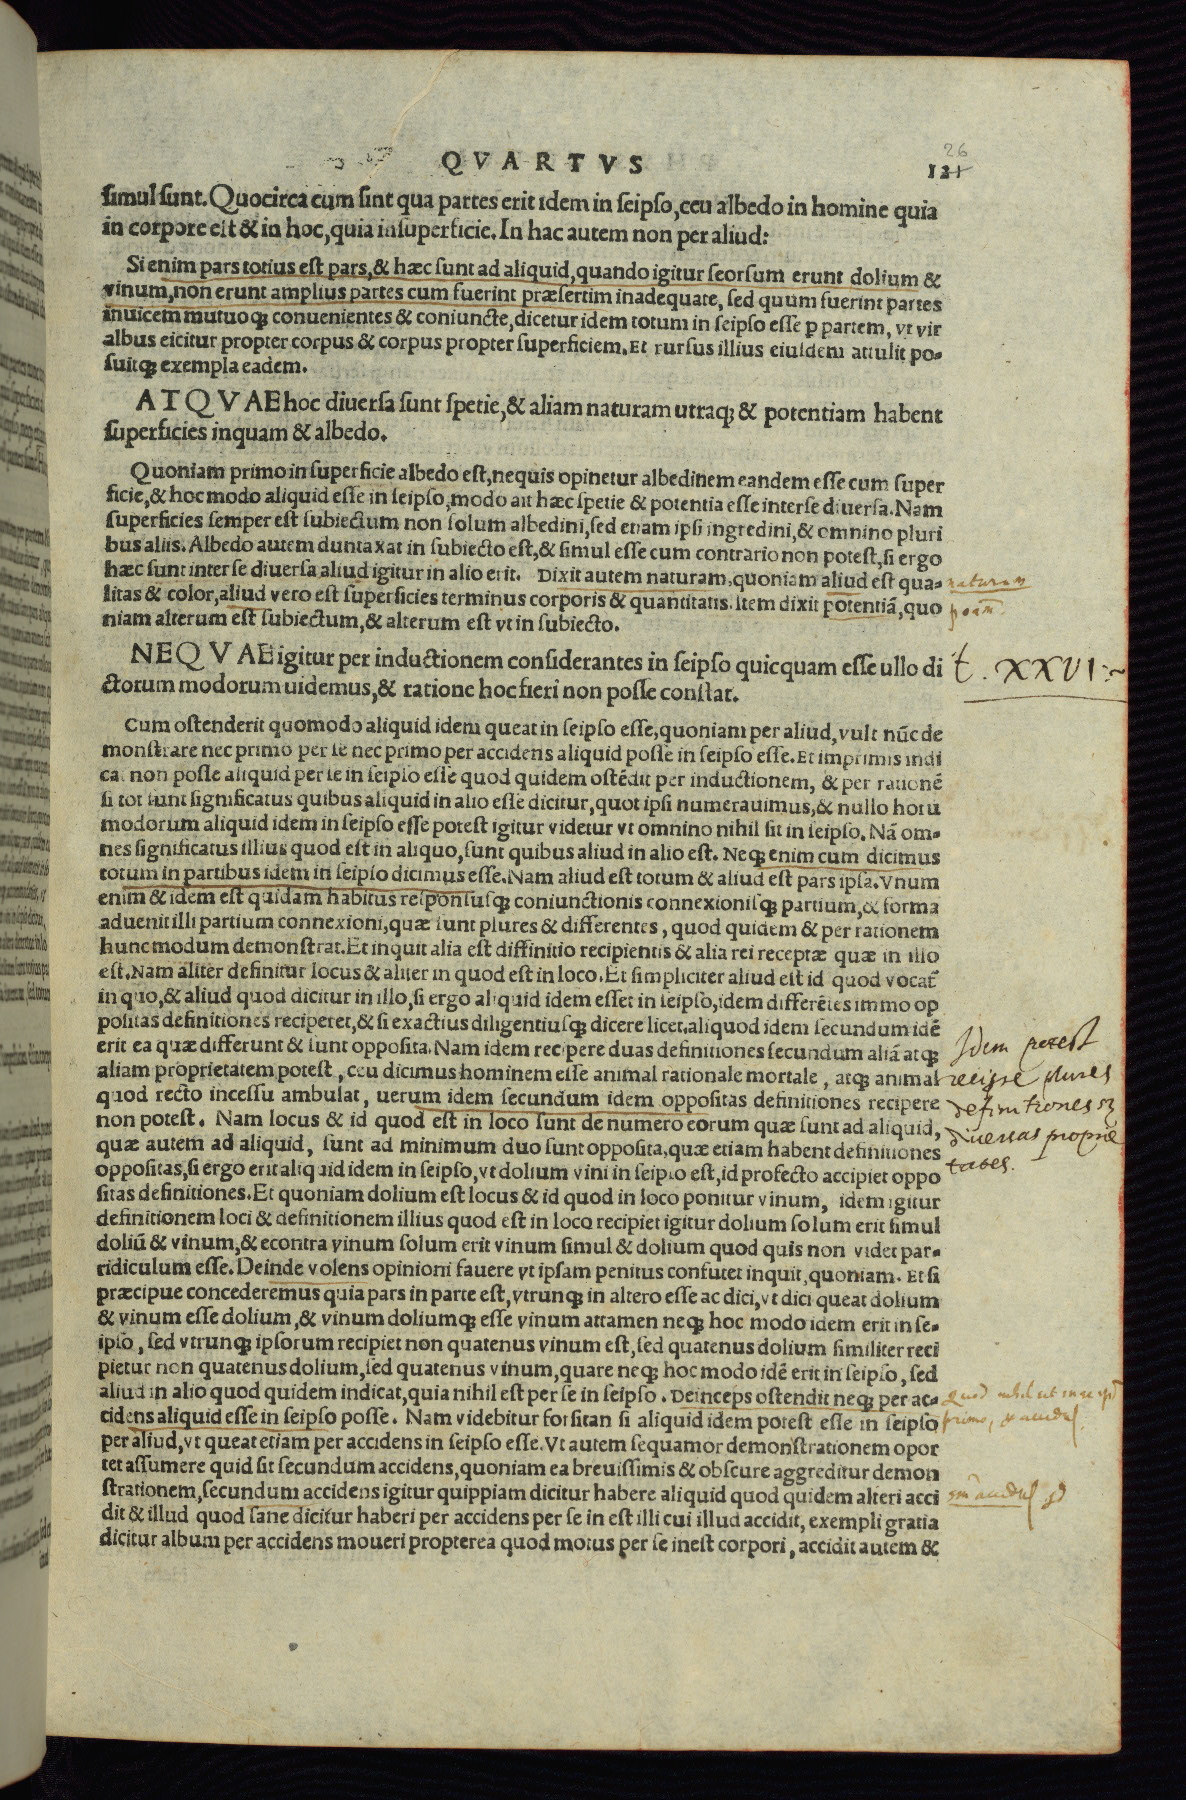 QVARTVS
26
121
simul sunt. Quocirca cum sint qua partes erit idem in seipso, ceu albedo in homine quia
in corpore est & in hoc, quia in superficie. In hac autem non per aliud:
Si enim pars totius est pars, & hæc sunt ad aliquid, quando igitur seorsum erunt dolium &
vinum, non erunt amplius partes cum fuerint præsertim inadequate, sed quum fuerint partes
inuicem mutuoq; conuenientes & coniuncte, dicetur idem totum in seipso esse p partem, vt vir
albus eicitur propter corpus & corpus propter superficiem. Et rursus illius eiusdem attulit po-
suitq; exempla eadem.
ATQVAE hoc diuersa sunt spetie, & aliam naturam utraq; & potentiam habent
superficies inquam & albedo.
Quoniam primo in superficie albedo est, nequis opinetur albedinem eandem esse cum super
ficie, & hoc modo aliquid esse in seipso, modo ait hæc spetie & potentia esse interse diuersa. Nam
superficies semper est subiectum non solum albedini, sed etiam ipsi ingredini, & omnino pluri
bus aliis. Albedo autem duntaxat in subiecto est, & simul esse cum contrario non potest, si ergo
hæc sunt inter se diuersa aliud igitur in alio erit. Dixit autem naturam, quoniam aliud est qua-
litas & color, aliud vero est superficies terminus corporis & quantitatis. Item dixit potentiā, quo
niam alterum est subiectum, & alterum est vt in subiecto.
naturam
NEQVAE igitur per inductionem considerantes in seipso quicquam esse ullo di
ctorum modorum uidemus, & ratione hoc fieri non posse constat.
t. XXVI.
Cum ostenderit quomodo aliquid idem queat in seipso esse, quoniam per aliud, vult nūc de
monstrare nec primo per se nec primo per accidens aliquid posse in seipso esse. Et imprimis indi
cat non posse aliquid per se in seipso esse quod quidem ostēdit per inductionem, & per rationē
si tot sunt significatus quibus aliquid in alio esse dicitur, quot ipsi numerauimus, & nullo horū
modorum aliquid idem in seipso esse potest igitur videtur vt omnino nihil sit in seipso. Nā om-
nes significatus illius quod est in aliquo, sunt quibus aliud in alio est. Neq; enim cum dicimus
totum in partibus idem in seipso dicimus esse. Nam aliud est totum & aliud est pars ipsa. Vnum
enim & idem est quidam habitus responsusq; coniunctionis connexionisq; partium, & forma
aduenit illi partium connexioni, quæ sunt plures & differentes, quod quidem & per rationem
hunc modum demonstrat. Et inquit alia est diffinitio recipientis & alia rei receptæ quæ in illo
est. Nam aliter definitur locus & aliter in quod est in loco. Et simpliciter aliud est id quod vocat̄
in quo, & aliud quod dicitur in illo, si ergo aliquid idem esset in seipso, idem differētes immo op
positas definitiones reciperet, & si exactius diligentiusq; dicere licet. aliquod idem secundum idē
erit ea quæ differunt & sunt opposita. Nam idem recipere duas definitiones secundum aliā atq;
aliam proprietatem potest, ceu dicimus hominem esse animal rationale mortale, atq; animal
quod recto incessu ambulat, uerum idem secundum idem oppositas definitiones recipere
non potest. Nam locus & id quod est in loco sunt de numero eorum quæ sunt ad aliquid,
quæ autem ad aliquid, sunt ad minimum duo sunt opposita, quæ etiam habent definitiones
oppositas, si ergo erit aliquid idem in seipso, vt dolium vini in seipso est, id profecto accipiet oppo
sitas definitiones. Et quoniam dolium est locus & id quod in loco ponitur vinum, idem igitur
definitionem loci & definitionem illius quod est in loco recipiet igitur dolium solum erit simul
doliū & vinum, & econtra vinum solum erit vinum simul & dolium quod quis non videt par-
ridiculum esse. Deinde volens opinioni fauere vt ipsam penitus confutet inquit, quoniam. Et si
præcipue concederemus quia pars in parte est, vtrunq; in altero esse ac dici, vt dici queat dolium
& vinum esse dolium, & vinum doliumq; esse vinum attamen neq; hoc modo idem erit in se-
ipso, sed vtrunq; ipsorum recipiet non quatenus vinum est, sed quatenus dolium similiter reci
pietur non quatenus dolium, sed quatenus vinum, quare neq; hoc modo idē erit in seipso, sed
aliud in alio quod quidem indicat, quia nihil est per se in seipso. Deinceps ostendit neq; per ac-
cidens aliquid esse in seipso posse. Nam videbitur forsitan si aliquid idem potest esse in seipso
per aliud, vt queat etiam per accidens in seipso esse. Vt autem sequamor demonstrationem opor
tet assumere quid sit secundum accidens, quoniam ea breuissimis & obscure aggreditur demon
strationem, secundum accidens igitur quippiam dicitur habere aliquid quod quidem alteri acci
dit & illud quod sane dicitur haberi per accidens per se in est illi cui illud accidit, exempli gratia
dicitur album per accidens moueri propterea quod motus per se inest corpori, accidit autem &
Idem potest
recipere plures
definitiones
diuersas proprie
tates.